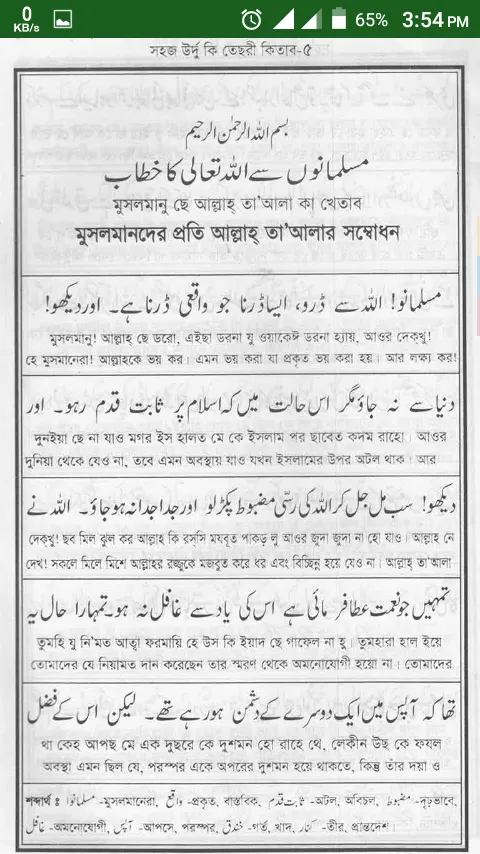 0
KB/s
65%
3:54PM
সহজ উর্দু কি তেছরী কিতাব-৫
بسم الله الرحمن الرحيم
مسلمانوں سے اللہ تعالی کا خطاب
মুসলমানু ছে আল্লাহ্ তা'আলা কা খেতাব
মুসলমানদের প্রতি আল্লাহ্ তা'আলার সম্বোধন
مسلمانو! اللہ سے ڈرو، ایسا ڈرنا جو واقعی ڈرنا ہے۔ اور دیکھو!
মুসলমানু! আল্লাহ্ ছে ডরো, এইছা ডরনা যু ওয়াকেঈ ডরনা হ্যায়, আওর দেক্খু!
হে মুসমানেরা! আল্লাহকে ভয় কর। এমন ভয় করা যা প্রকৃত ভয় করা হয়। আর লক্ষ্য কর!
دنیا سے نہ جاؤ مگر اس حالت میں کہ اسلام پر ثابت قدم رہو۔ اور
দুনইয়া ছে না যাও মগর ইস হালত মে কে ইসলাম পর ছাবেত কদম রাহো। আওর
দুনিয়া থেকে যেও না, তবে এমন অবস্থায় যাও যখন ইসলামের উপর অটল থাক। আর
دیکھو! سب مل جل کر اللہ کی رسّی مضبوط پکڑ لو اور جدا جدا نہ ہو جاؤ۔ اللہ نے
দেক্খু! ছব মিল ঝুল কর আল্লাহ কি রস্সি মযবূত পাকড় লু আওর জুদা জুদা না হো যাও। আল্লাহ নে
দেখ! সকলে মিলে মিশে আল্লাহর রজ্জুকে মজবুত করে ধর এবং বিচ্ছিন্ন হয়ে যেও না। আল্লাহ্ তা'আলা
تمہیں جو نعمت عطا فرمائی ہے اس کی یاد سے غافل نہ ہو۔ تمہارا حال یہ
তুমহি যু নি'মত আত্বা ফরমায়ি হে উস কি ইয়াদ ছে গাফেল না হু। তুমহারা হাল ইয়ে
তোমাদের যে নিয়ামত দান করেছেন তার স্মরণ থেকে অমনোযোগী হয়ো না। তোমাদের
تھا کہ آپس میں ایک دوسرے کے دشمن ہو رہے تھے۔ لیکن اس کے فضل
থা কেহ আপছ মে এক দুছরে কে দুশমন হো রাহে থে, লেকীন উছ কে ফযল
অবস্থা এমন ছিল যে, পরস্পর একে অপরের দুশমন হয়ে থাকতে, কিন্তু তাঁর দয়া ও
শব্দার্থ ঃ مسلمانو -মুসলমানেরা, واقع -প্রকৃত, বাস্তবক, ثابت قدم -অটল, অবিচল, مضبوط -দৃঢ়ভাবে,
غافل -অমনোযোগী, آپس -আপসে, পরস্পর, خندق -গর্ত, খাদ, کنار -তীর, প্রান্তদেশ।